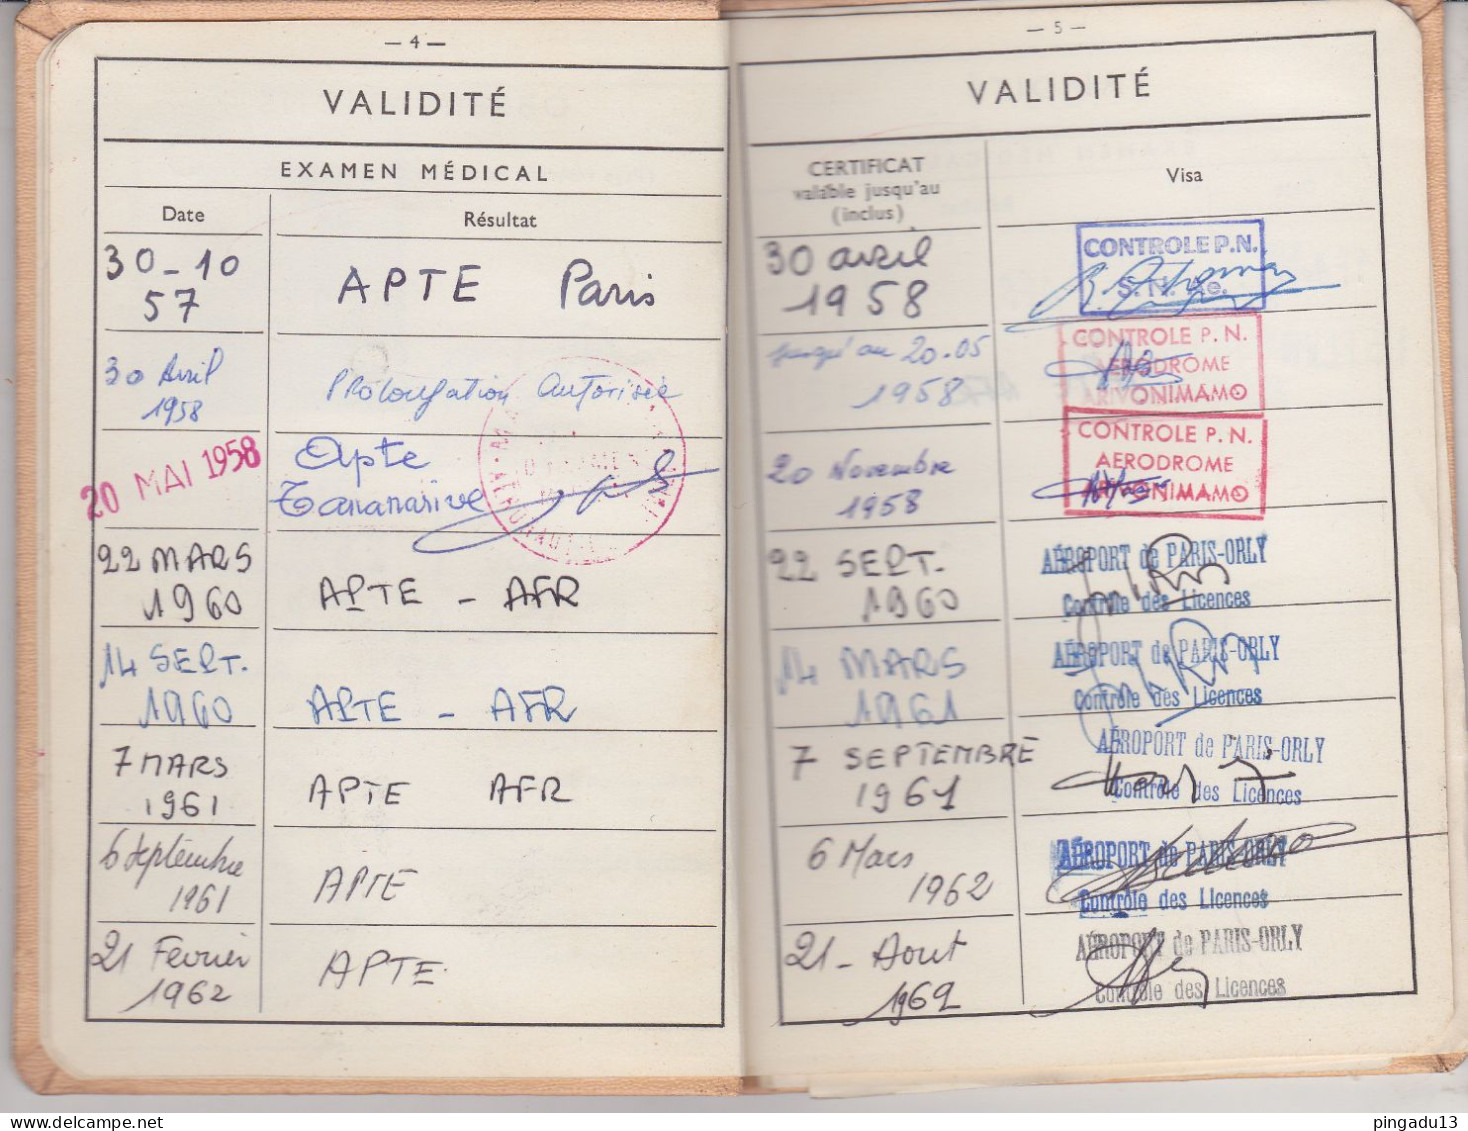 — 4 —
VALIDITÉ
EXAMEN MÉDICAL
Date
Résultat
30-10
57
APTE Paris
30 Avril
1958
Prolongation autorisée
20 MAI 1958
Apte
Tananarive
22 MARS
1960
APTE - AFR
14 SEPT.
1960
APTE - AFR
7 MARS
1961
APTE AFR
6 Septembre
1961
APTE
21 Février
1962
APTE
— 5 —
VALIDITÉ
CERTIFICAT
valable jusqu'au
(inclus)
Visa
30 avril
1958
CONTROLE P.N.
jusqu'au 20.05
1958
CONTROLE P.N.
AERODROME
ARIVONIMAMO
20 Novembre
1958
CONTROLE P.N.
AERODROME
ARIVONIMAMO
22 SEPT.
1960
AÉROPORT de PARIS-ORLY
Contrôle des Licences
14 MARS
1961
AÉROPORT de PARIS-ORLY
Contrôle des Licences
7 SEPTEMBRE
1961
AÉROPORT de PARIS-ORLY
Contrôle des Licences
6 Mars
1962
AÉROPORT de PARIS-ORLY
Contrôle des Licences
21 - Aout
1962
AÉROPORT de PARIS-ORLY
Contrôle des Licences
pingadu13